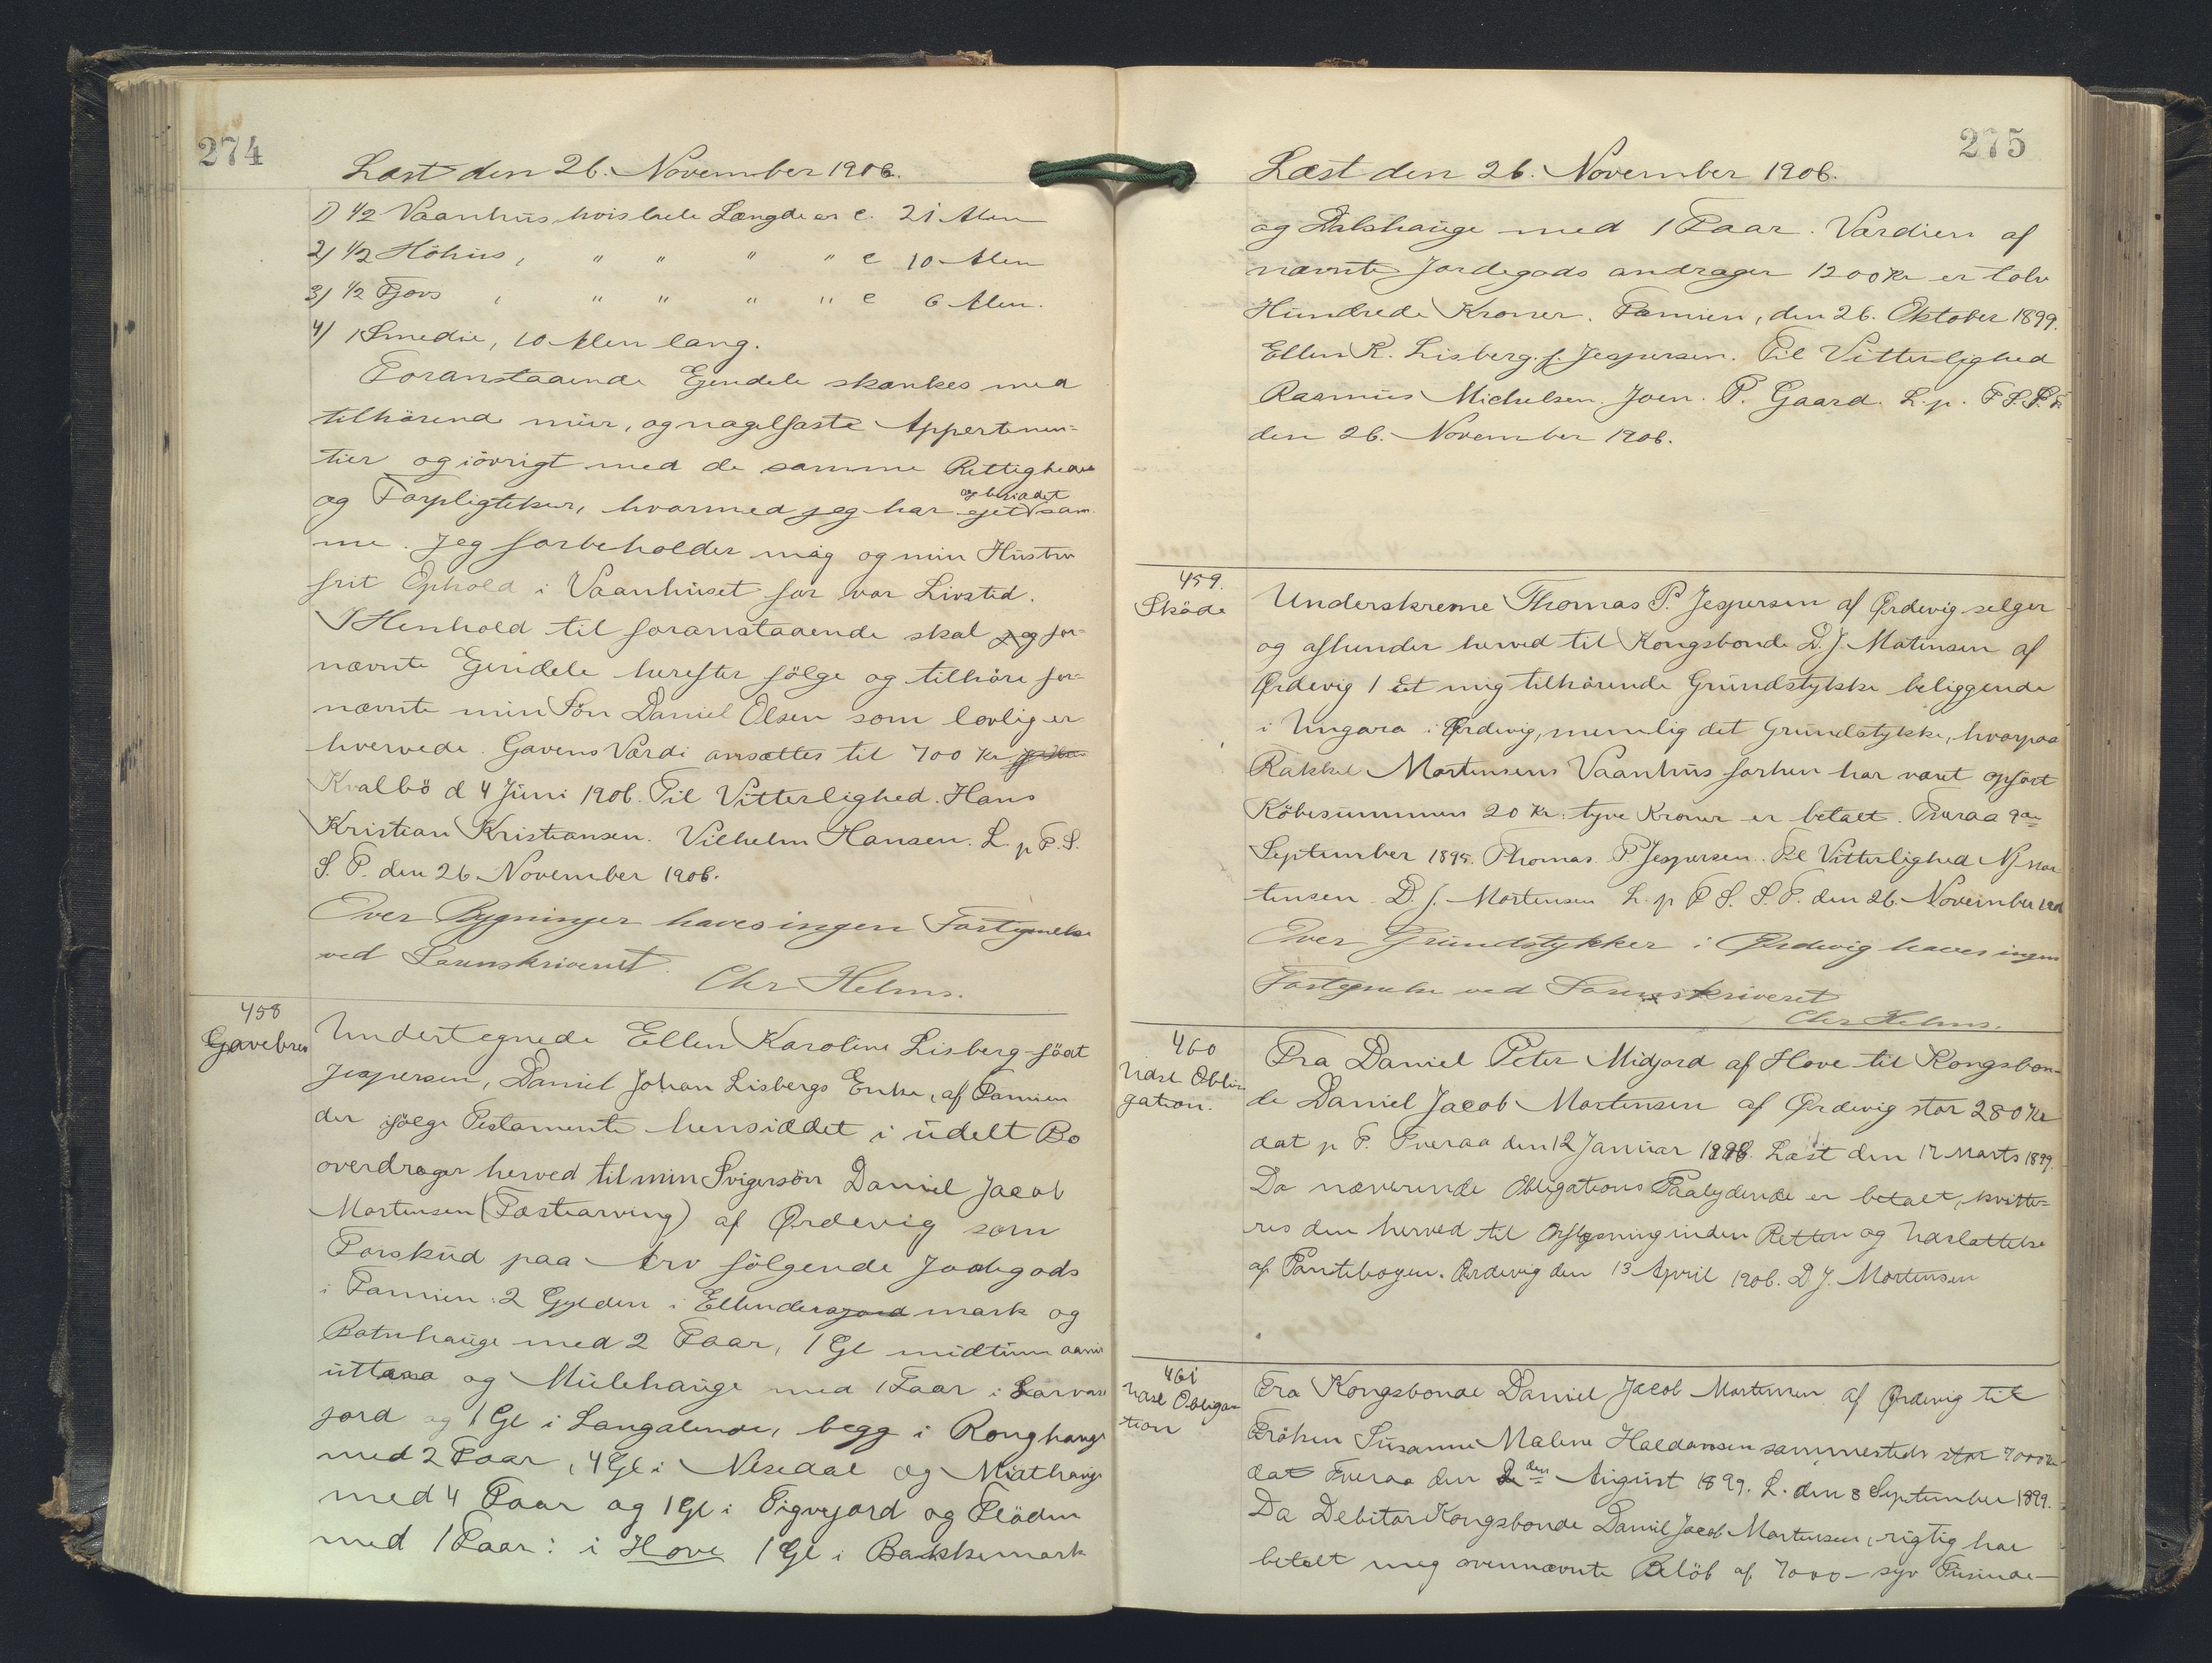 274
Læst den 26. November 1906.
1) 1/2 Vaanhus hvis hele Længde er c. 21 Alen
2) 1/2 Höhus, " " " " c 10 Alen
3) 1/2 Fjøs , " " " " c 6 Alen.
4) 1 Smedie, 10 Alen lang.
Foranstaaende Ejendele skænkes med
tilhörende mur, og nagelfaste Appertinen=
tier og iövrigt med de samme Rettigheder
og Forpligtelser, hvormed jeg har ejet og besiddet sam
me. Jeg forbeholder mig og min Hustru
frit Ophold i Vaanhuset for vor Livstid.
I Henhold til foranstaaende skal jeg for=
nævnte Ejendele herefter fölge og tilhöre for=
nævnte min Sön Daniel Olsen som lovlig er
hvervede. Gavens Værdi ansættes til 700 Kr
Kvalbö d 4 Juni 1906. Til Vitterlighed. Hans
Kristian Kristiansen. Vilhelm Hansen. L. p F. S.
S. T. den 26 November 1906.
Over Bygninger haves ingen Hjemmelse
ved Sorenskriveriet.
Chr Helms.
458
Gavebrev
Undertegnede Ellen Karoline Lisberg födt
Jespersen, Daniel Johan Lisbergs Enke, af Famien
der ifölge Testamente hensidder i udelt Bo
overdrager herved til min Svigersön Daniel Jacob
Mortensen (Fæstearving) af Ørdevig som
Forskud paa Arv fölgende Jordegods
i Famien: 2 Gylden i Ellendersjord mark og
Botnhauge med 2 Faar, 1 Gl midtum aarnir
uttasa og Mulehauge med 1 Faar i
jord og 1 Gl i Langalende, begg i Ronghauge
med 2 Faar, 4 Gl i Nesedal og Midthauge
med 4 Faar og 1 Gl i Tigvejord og Flöden
med 1 Faar: i Hove 1 Gl i Bakkemark
275
Læst den 26. November 1906.
og Dalshauge med 1 Faar. Værdien af
nævnte Jordegods andrager 1200 Kr er tolv
Hundrede Kroner. Famien, den 26. Oktober 1899.
Ellen K. Lisberg f. Jespersen. Til Vitterlighed
Rasmus Michelsen. Joen. P. Gaard. L. p. F. S. S. T.
den 26. November 1906.
459.
Sköde
Underskrevne Thomas P. Jespersen af Ørdevig selger
og afhender herved til Kongsbonde D. J. Mortensen af
Ørdevig 1 Et mig tilhörende Grundstykke beliggende
i Ungara i Ørdevig, nemlig det Grundstykke, hvorpaa
Rakkel Mortensens Vaanhus forhen har været opfört
Köbesummen 20 Kr. tyve Kroner er betalt. Tveraa 9de
September 1895. Thomas P. Jespersen. Til Vitterlighed N. J. Mor
tensen. D. J. Mortensen L. p F. S. S. T. den 26. November 1906
Over Grundstykker i Ørdevig haves ingen
Hjemmelse ved Sorenskriveriet
Chr Helms.
460
Udsl Obli
gation.
Fra Daniel Peter Midjord af Hove til Kongsbon=
de Daniel Jacob Mortensen af Ørdevig stor 280 Kr
dat p T. Tveraa den 12 Januar 1898. Læst den 17 Marts 1899.
Da nærværende Obligations Paalydende er betalt, kvitte=
res den herved til Aflysning inden Retten og Udslettelse
af Pantebogen. Ørdevig den 13 April 1906. D J. Mortensen
461
Udsl Obliga
tion
Fra Kongsbonde Daniel Jacob Mortensen af Ørdevig til
Fröken Susanne Malene Haldansen sammesteds stor 7000 Kr
dat Tveraa den 2den August 1899. L. den 8 September 1899.
Da Debitor Kongsbonde Daniel Jacob Mortensen, rigtig har
betalt mig ovennævnte Belöb af 7000 – syv Tusinde –